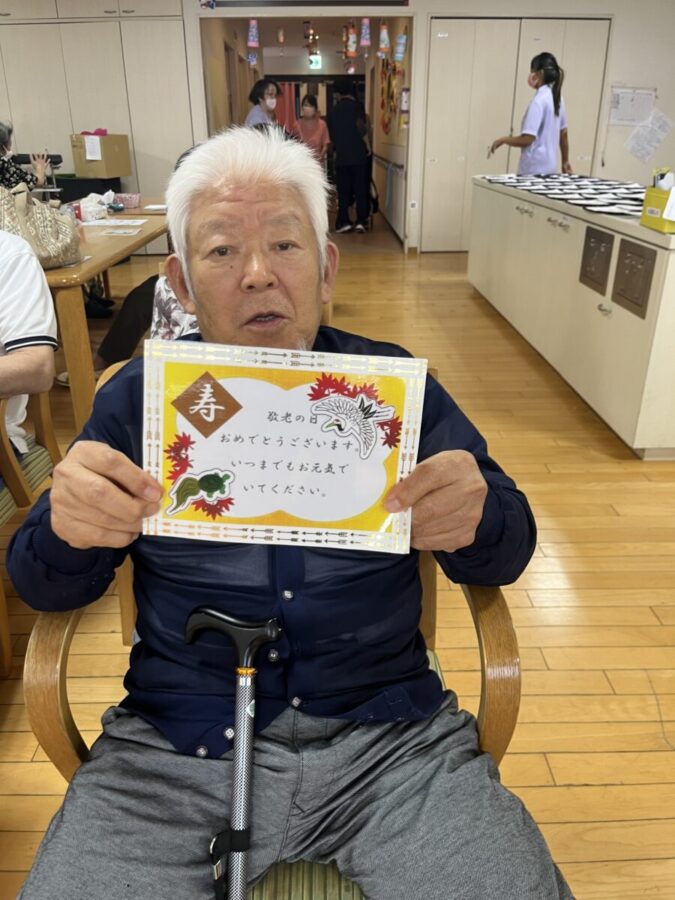 寿
敬老の日
おめでとうございます。
いつまでもお元気で
いてください。